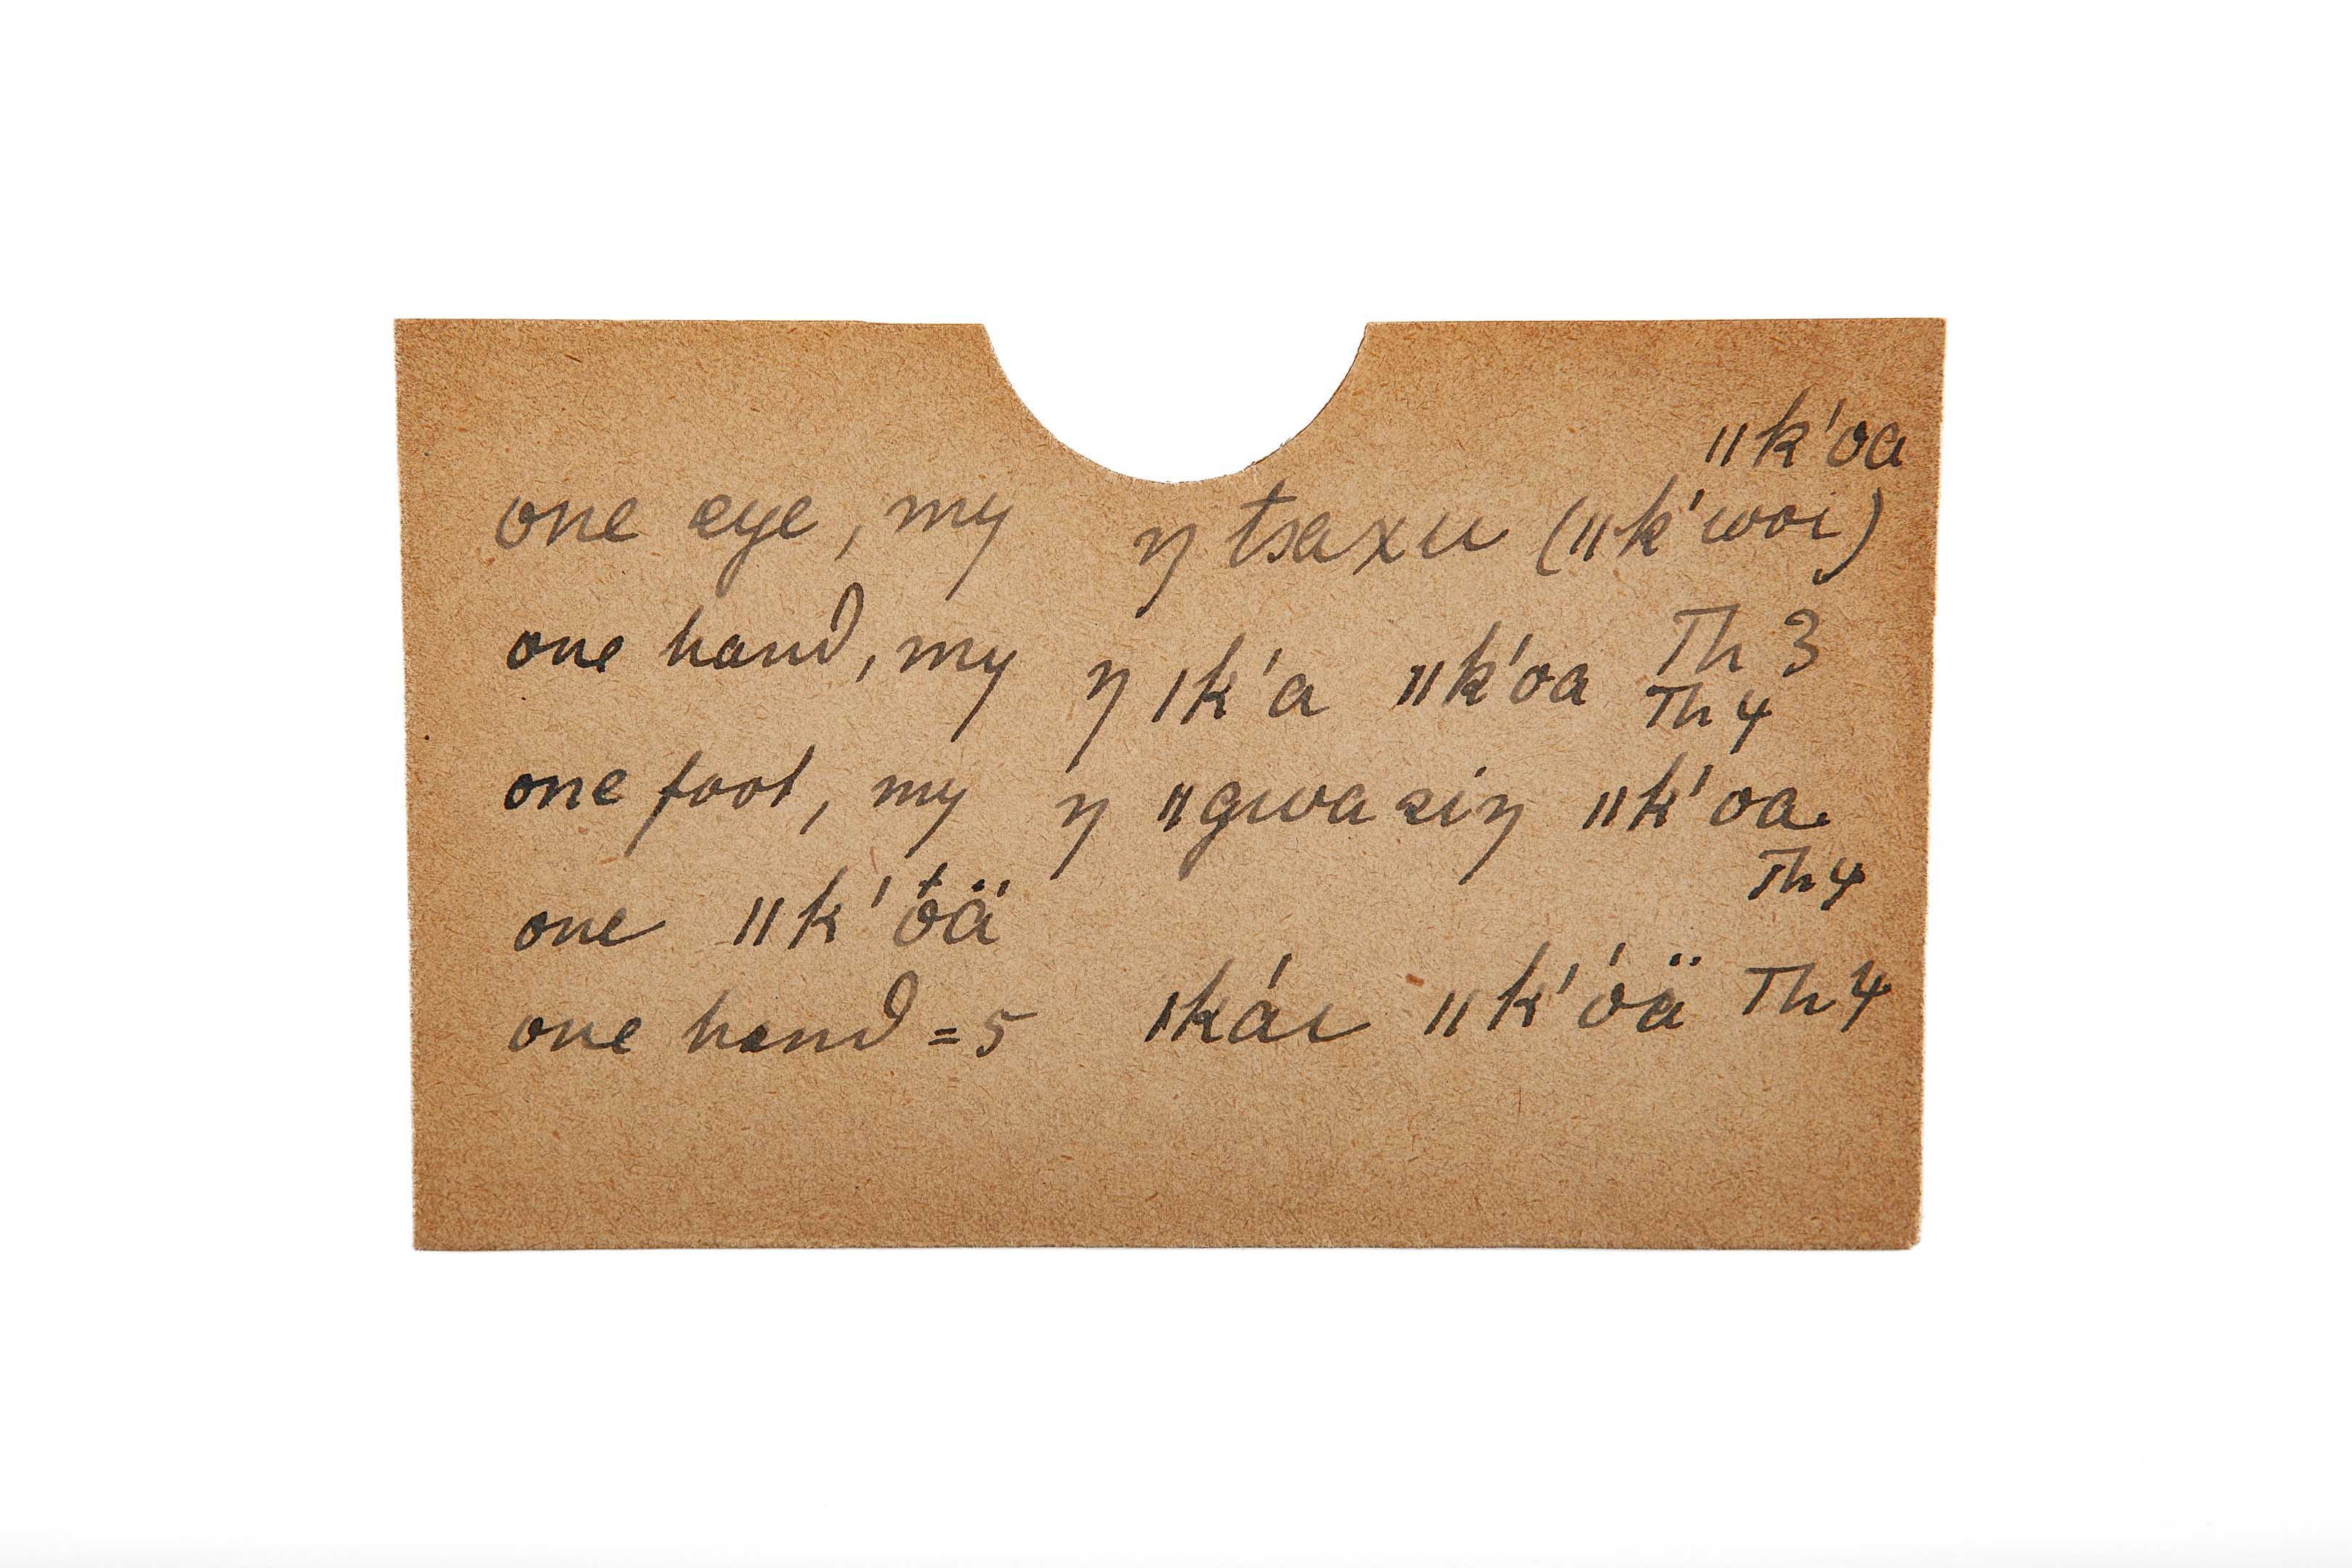 ǁk'oa
one eye, my ŋ tsaxu (ǁk'woi)
one hand, my ŋ ǀk'a ǁk'oa Th 3
Th 4
one foot, my ŋ ǁgwa ziŋ ǁk'oa
Th 4
one ǁk'óä
one hand = 5 ǀkáı ǁk'óä Th 4